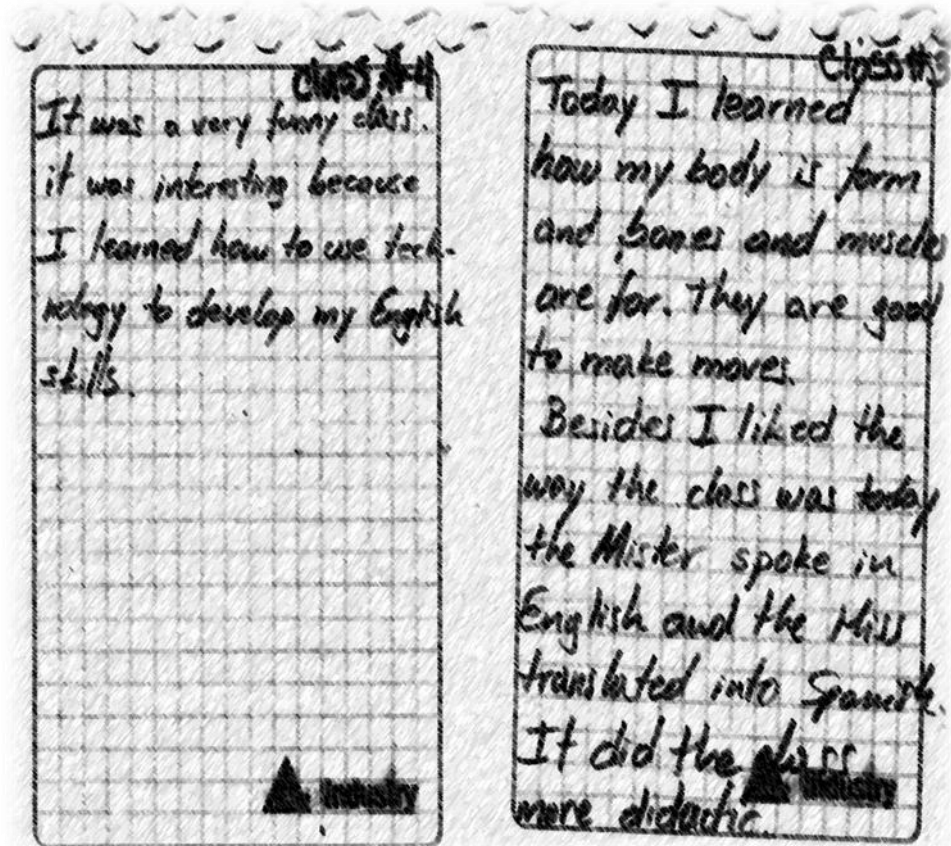 Class #4
It was a very funny class.
it was interesting because
I learned how to use tech-
nology to develop my English
skills.
Industry
Class #5
Today I learned
how my body is form
and bones and muscles
are for. They are good
to make moves.
Besides I liked the
way the class was today
the Mister spoke in
English and the Miss
translated into Spanish.
It did the class
more didactic.
Industry